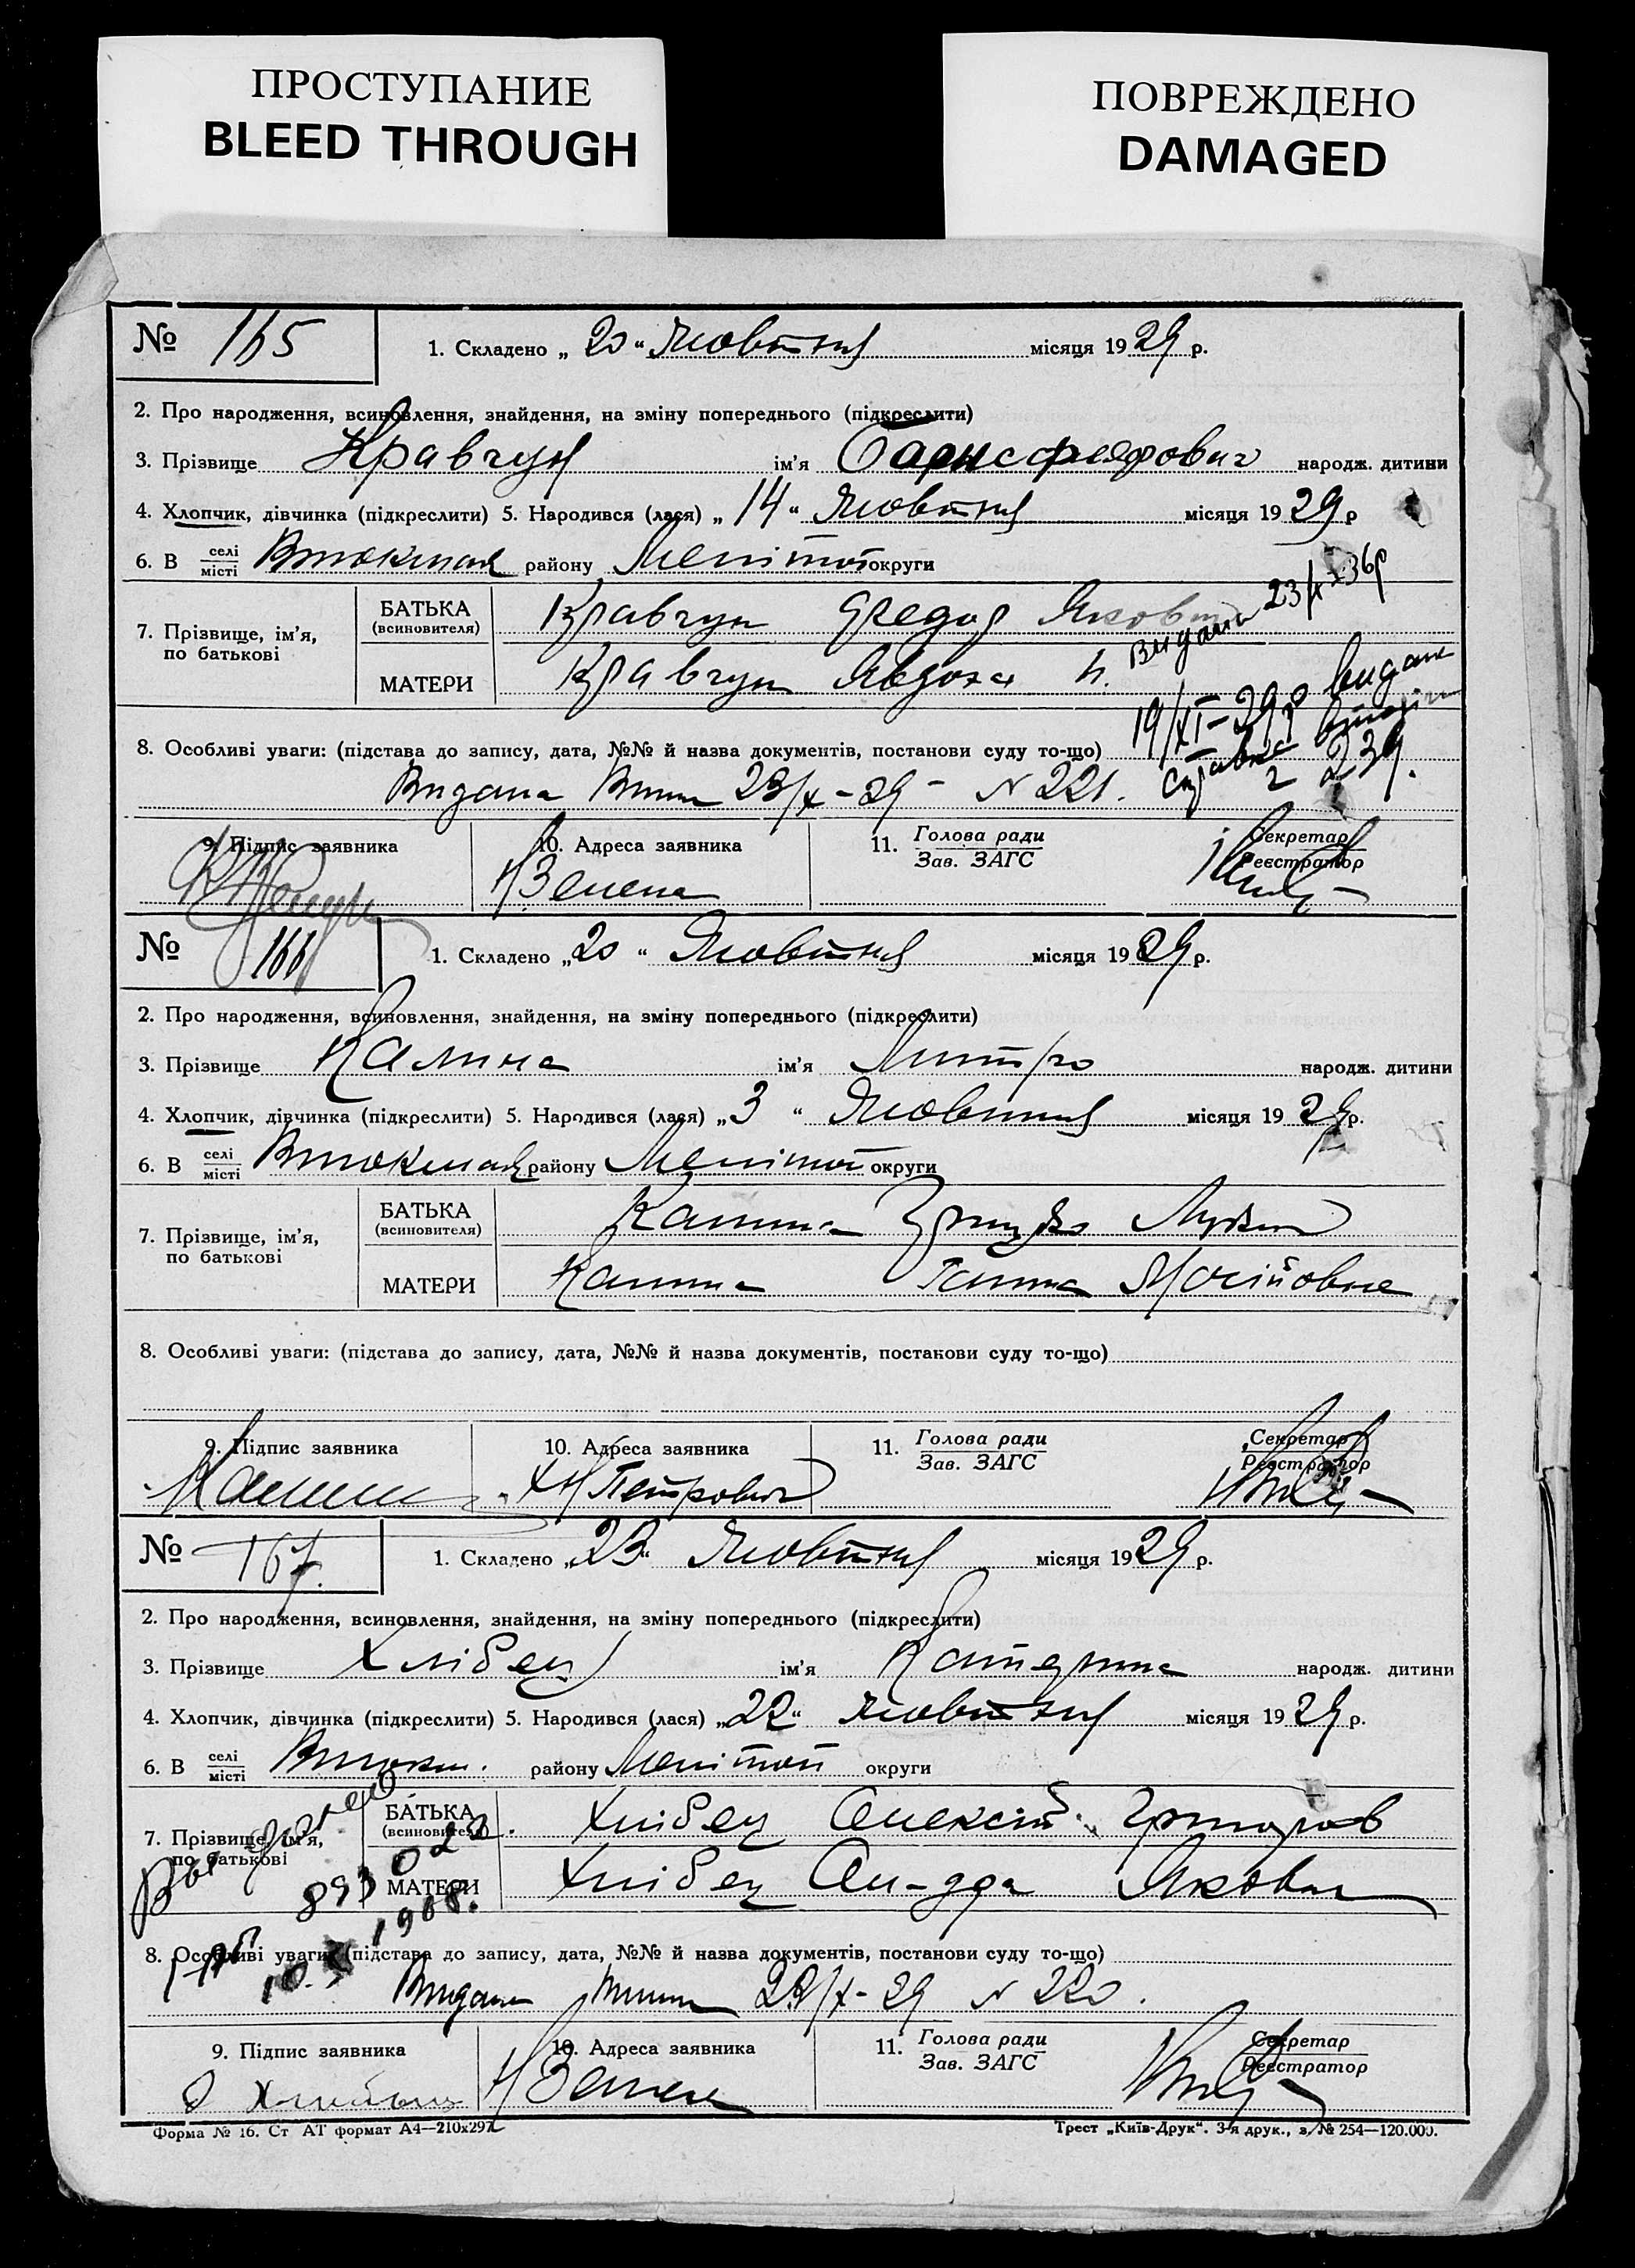 ПРОСТУПАНИЕ
BLEED THROUGH
ПОВРЕЖДЕНО
DAMAGED
№ 165 1. Складено „ 20 “ Жовтня місяця 1929 р.
2. Про народження, всиновлення, знайдення, на зміну попереднього (підкреслити)
3. Прізвище Кравчун ім'я народж. дитини
4. Хлопчик, дівчинка (підкреслити) 5. Народився (лася) „ 14 “ Жовтня місяця 1929 р
6. В селі місті Втокмак району Мелітоп округи
7. Прізвище, ім'я, по батькові
БАТЬКА (всиновителя) Кравчун Федор Якович
МАТЕРИ Кравчун Явдоха
Видано 23/X 36р
19/XI-29р видан
справка
2 239.
8. Особливі уваги: (підстава до запису, дата, №№ й назва документів, постанови суду то-що)
Видана 23/X-29 N 221.
9. Підпис заявника 10. Адреса заявника 11. Голова ради Зав. ЗАГС Секретар Реєстратор
№ 166 1. Складено „ 20 “ Жовтня місяця 1929 р.
2. Про народження, всиновлення, знайдення, на зміну попереднього (підкреслити)
3. Прізвище Калина ім'я Митро народж. дитини
4. Хлопчик, дівчинка (підкреслити) 5. Народився (лася) „ 3 “ Жовтня місяця 1929 р.
6. В селі місті Втокмак району Мелітоп округи
7. Прізвище, ім'я, по батькові
БАТЬКА (всиновителя) Калина Грицько
МАТЕРИ Калина Ганна
8. Особливі уваги: (підстава до запису, дата, №№ й назва документів, постанови суду то-що)
9. Підпис заявника 10. Адреса заявника 11. Голова ради Зав. ЗАГС Секретар Реєстратор
Калина Петровка
№ 167. 1. Складено „ 23 “ Жовтня місяця 1929 р.
2. Про народження, всиновлення, знайдення, на зміну попереднього (підкреслити)
3. Прізвище Хлібец ім'я Катерина народж. дитини
4. Хлопчик, дівчинка (підкреслити) 5. Народився (лася) „ 22 “ Жовтня місяця 1929 р.
6. В селі місті Втокм. району Мелітоп округи
7. Прізвище, ім'я, по батькові
БАТЬКА (всиновителя) Хлібец Олексій Григоров
МАТЕРИ Хлібец Яковл
1968.
8. Особливі уваги: (підстава до запису, дата, №№ й назва документів, постанови суду то-що)
Видана 23/X-29 N 220.
9. Підпис заявника 10. Адреса заявника 11. Голова ради Зав. ЗАГС Секретар Реєстратор
Форма № 16. Ст АТ формат А4—210х297
Трест „Київ-Друк“. 3-я друк., з. № 254—120.000.